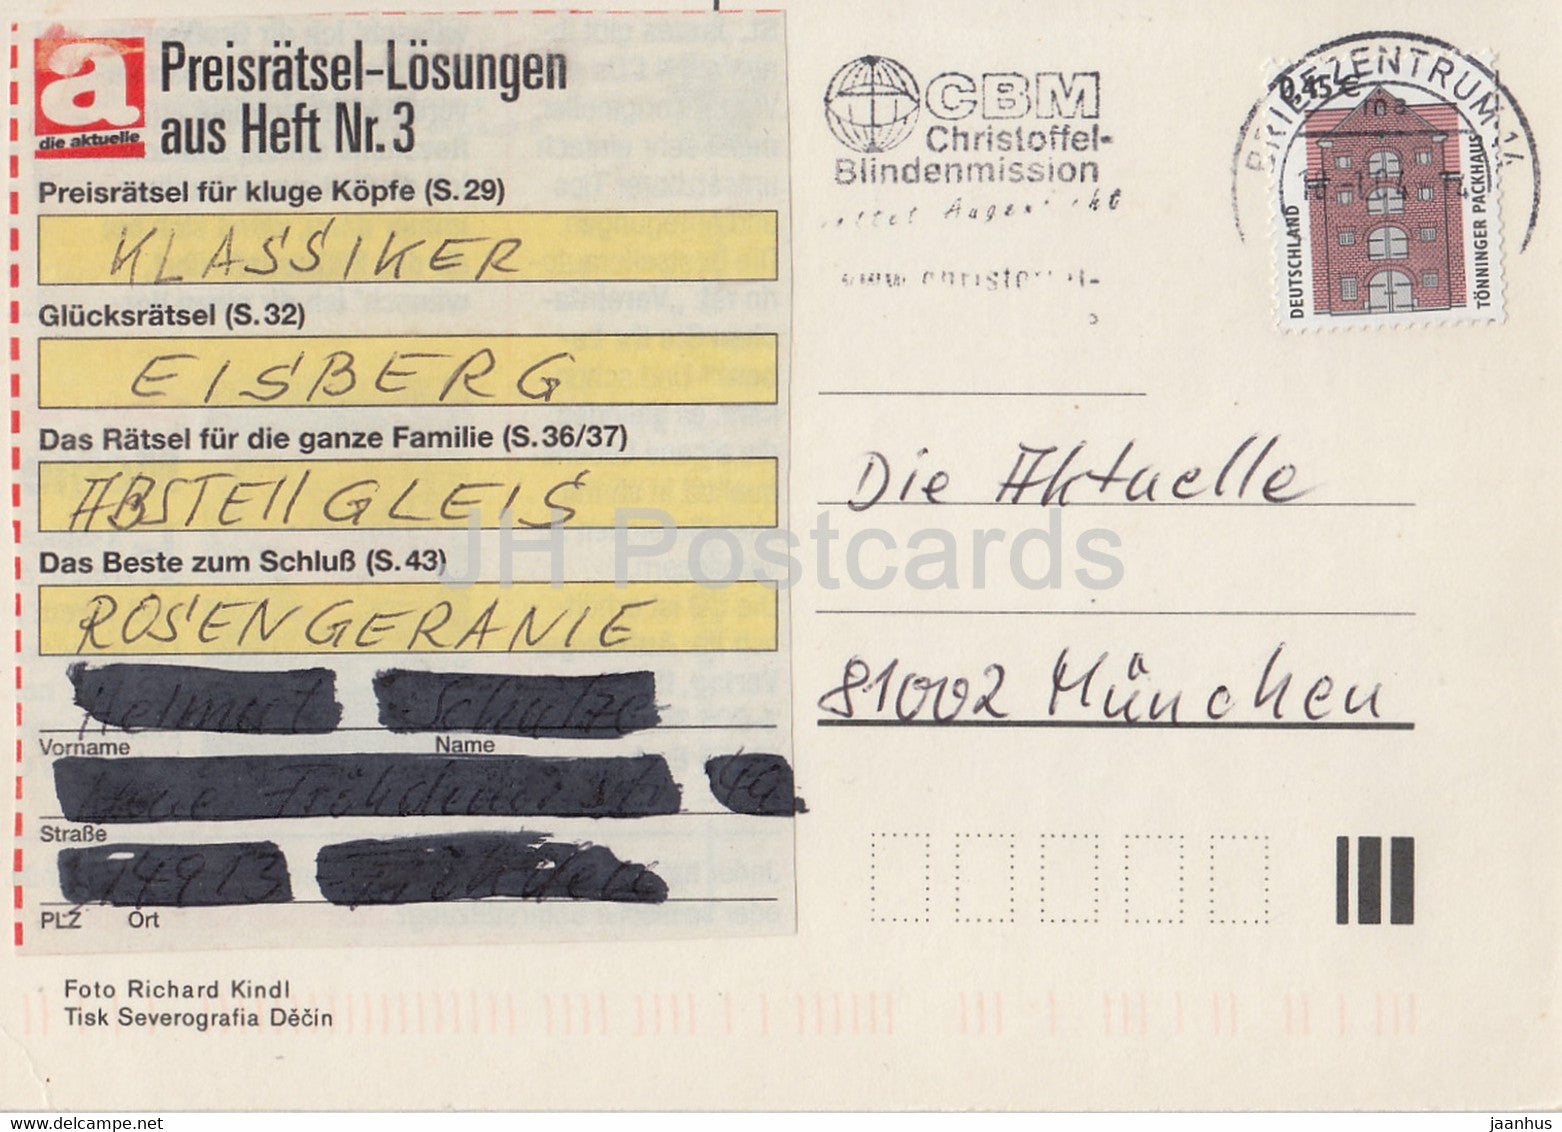 a
die aktuelle
Preisrätsel-Lösungen
aus Heft Nr. 3
Preisrätsel für kluge Köpfe (S. 29)
KLASSIKER
Glücksrätsel (S. 32)
EISBERG
Das Rätsel für die ganze Familie (S. 36/37)
ABSTEllGLEIS
Das Beste zum Schluß (S. 43)
ROSENGERANIE
Vorname Name
Straße
PLZ Ort
Foto Richard Kindl
Tisk Severografia Děčín
CBM
Christoffel-
Blindenmission
BRIEFZENTRUM 14
0,45€
DEUTSCHLAND
TÖNNINGER PACKHAUS
Die Aktuelle
81002 München
JH Postcards
www.delcampe.net
jaanhus